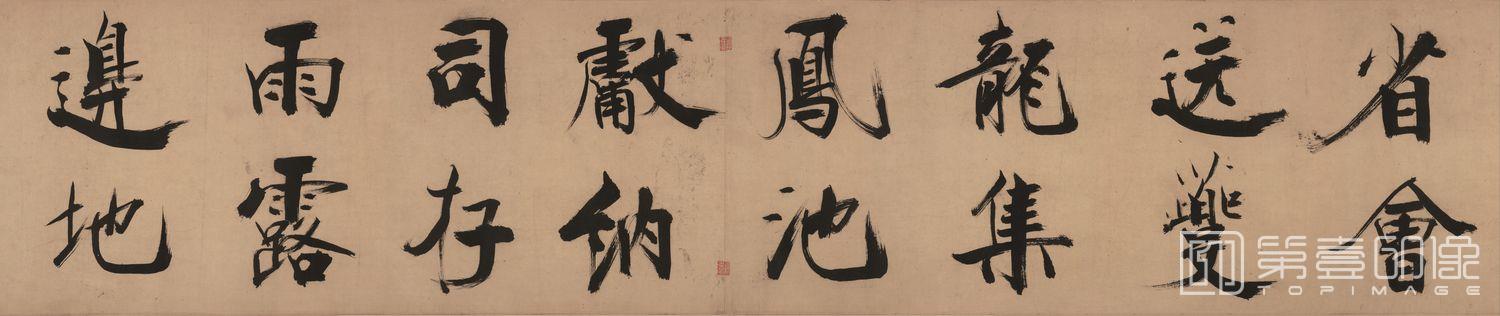 省會
送夔
龍集
鳳池
獻納
司存
雨露
邊地
第壹印像
TOPIMAGE